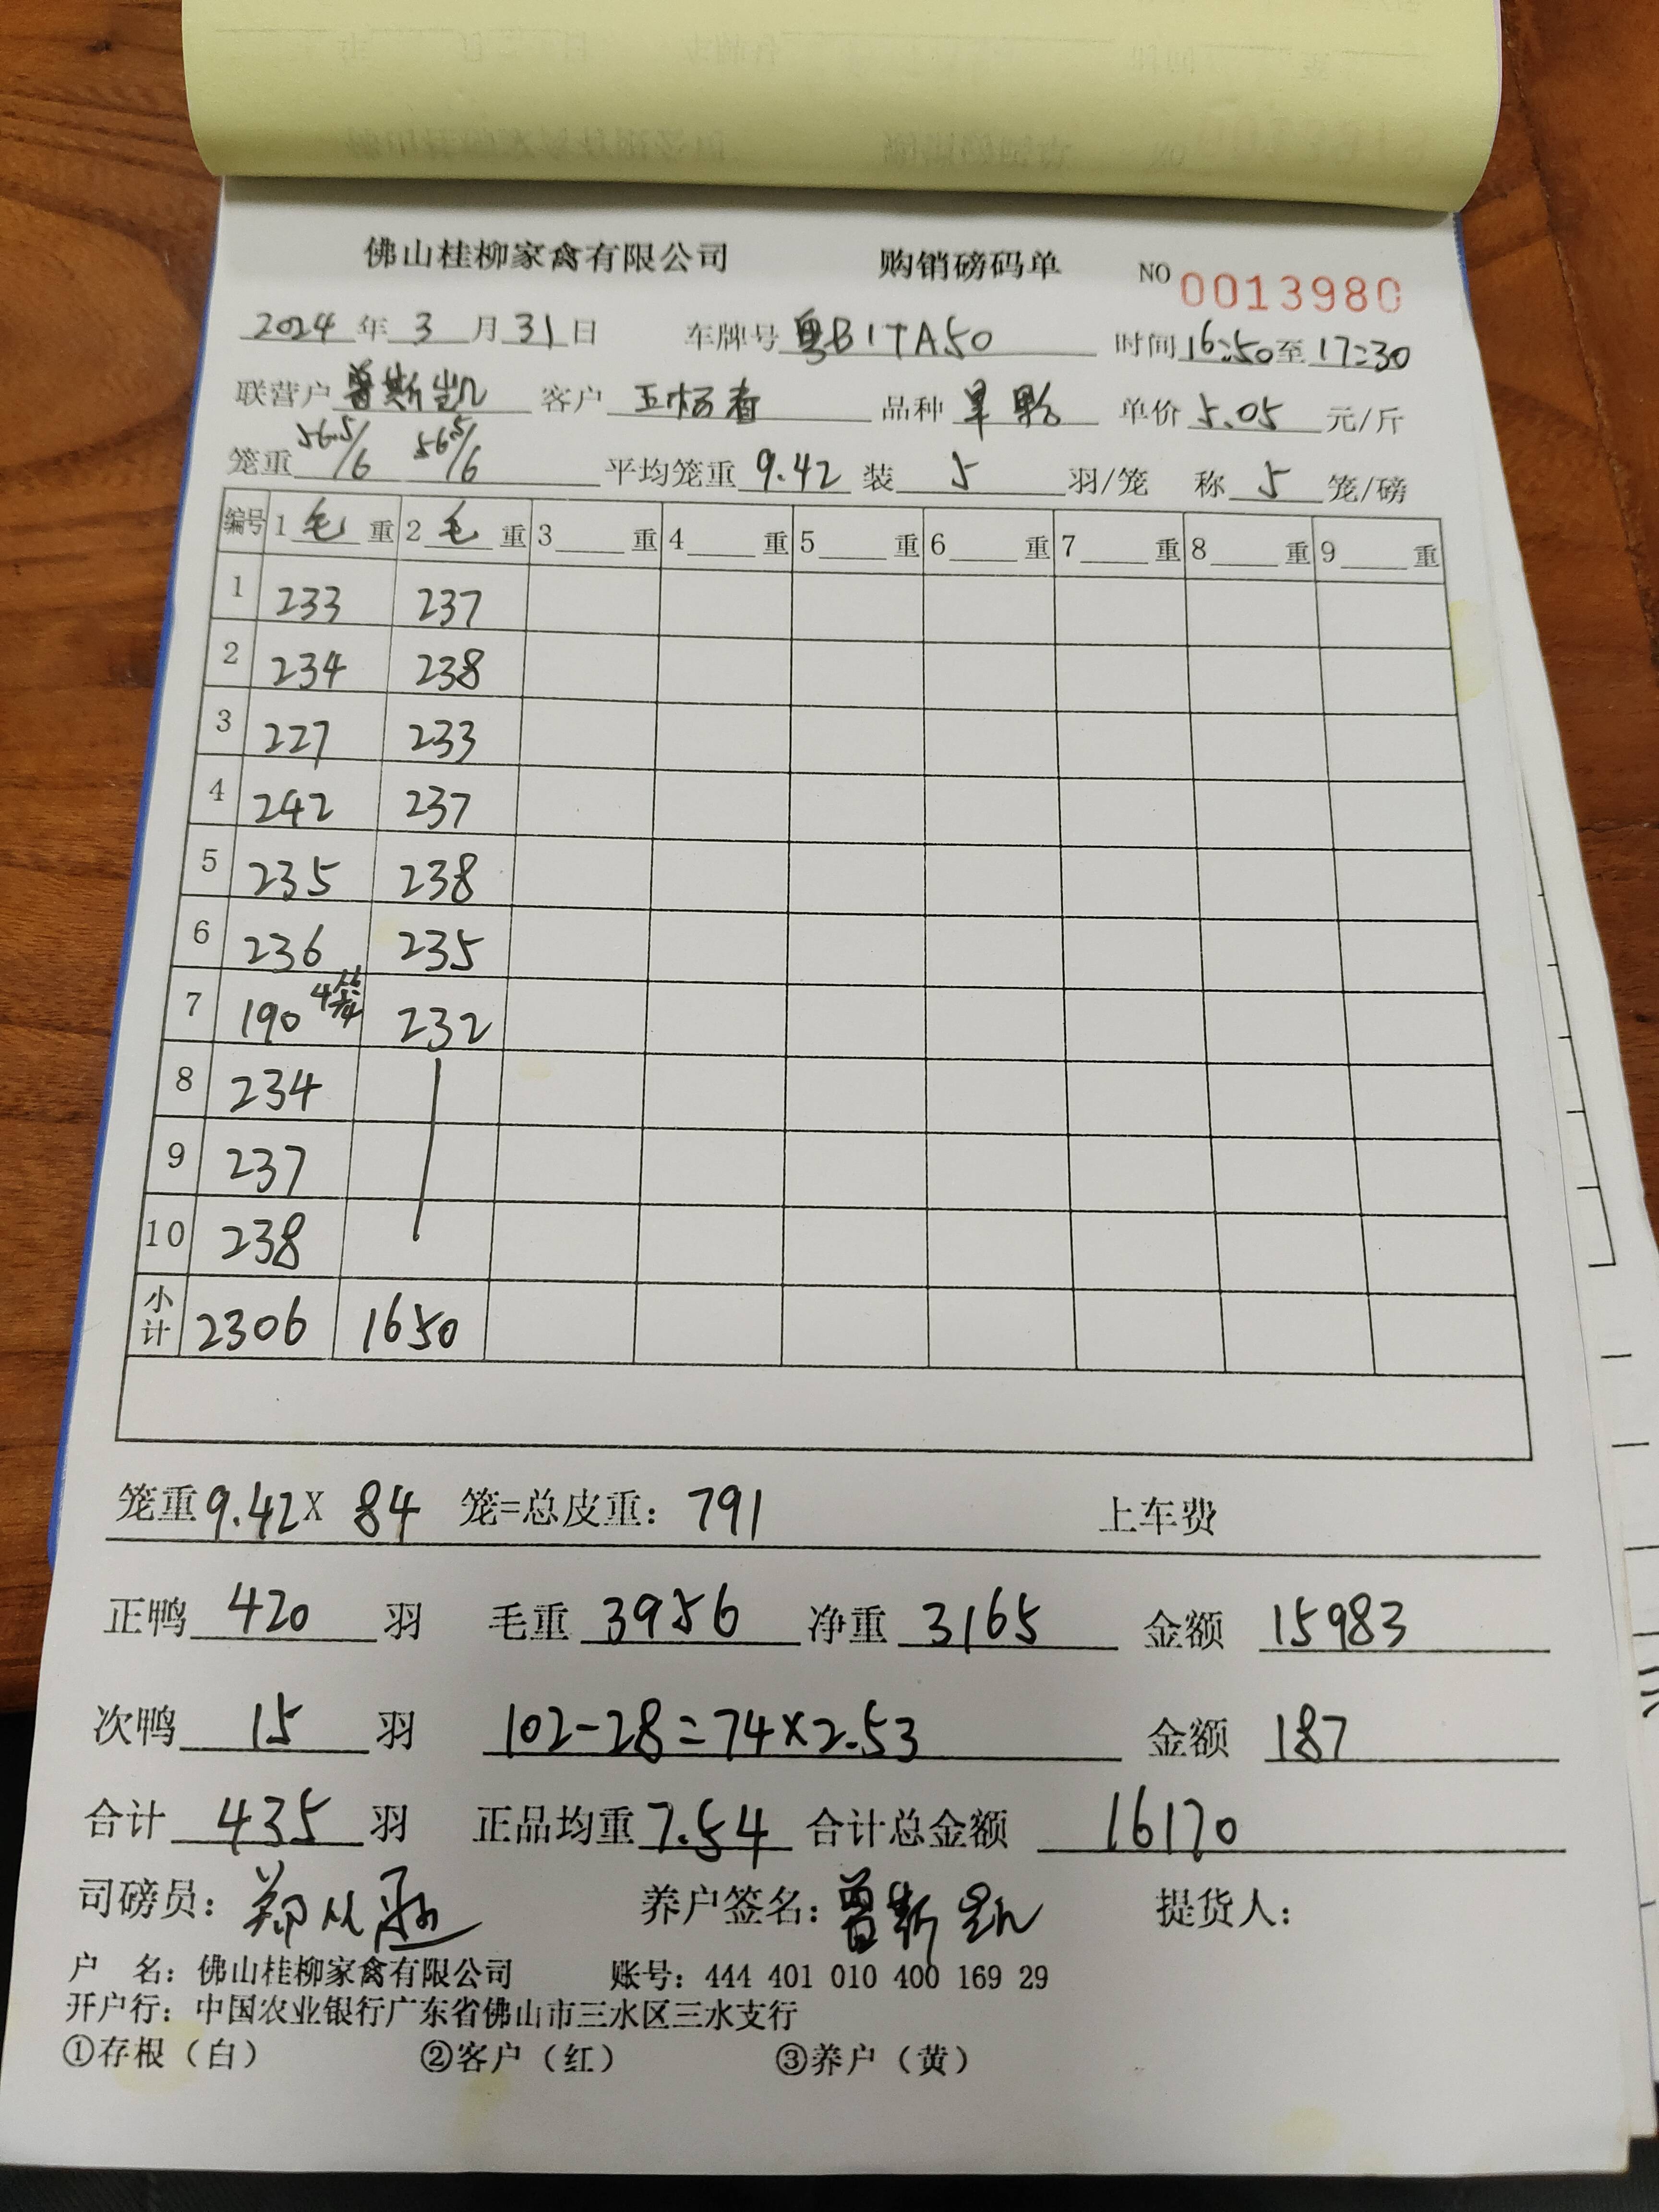 佛山桂柳家禽有限公司 购销磅码单 NO 0013980
2024 年 3 月 31 日 车牌号 粤B1TA50 时间 16:50 至 17:30
联营户 曾斯凯 客户 品种 单价 5.05 元/斤
笼重 56.5/6 56.5/6 平均笼重 9.42 装 5 羽/笼 称 5 笼/磅
编号 1 毛 重 2 毛 重 3 重 4 重 5 重 6 重 7 重 8 重 9 重
1 233 237
2 234 238
3 227 233
4 242 237
5 235 238
6 236 235
7 190 4 232
8 234
9 237
10 238
小计 2306 1650
笼重 9.42 X 84 笼=总皮重: 791 上车费
正鸭 420 羽 毛重 3956 净重 3165 金额 15983
次鸭 15 羽 102-28=74×2.53 金额 187
合计 435 羽 正品均重 7.54 合计总金额 16170
司磅员: 郑 养户签名: 曾斯凯 提货人:
户 名: 佛山桂柳家禽有限公司 账号: 444 401 010 400 169 29
开户行: 中国农业银行广东省佛山市三水区三水支行
①存根（白） ②客户（红） ③养户（黄）